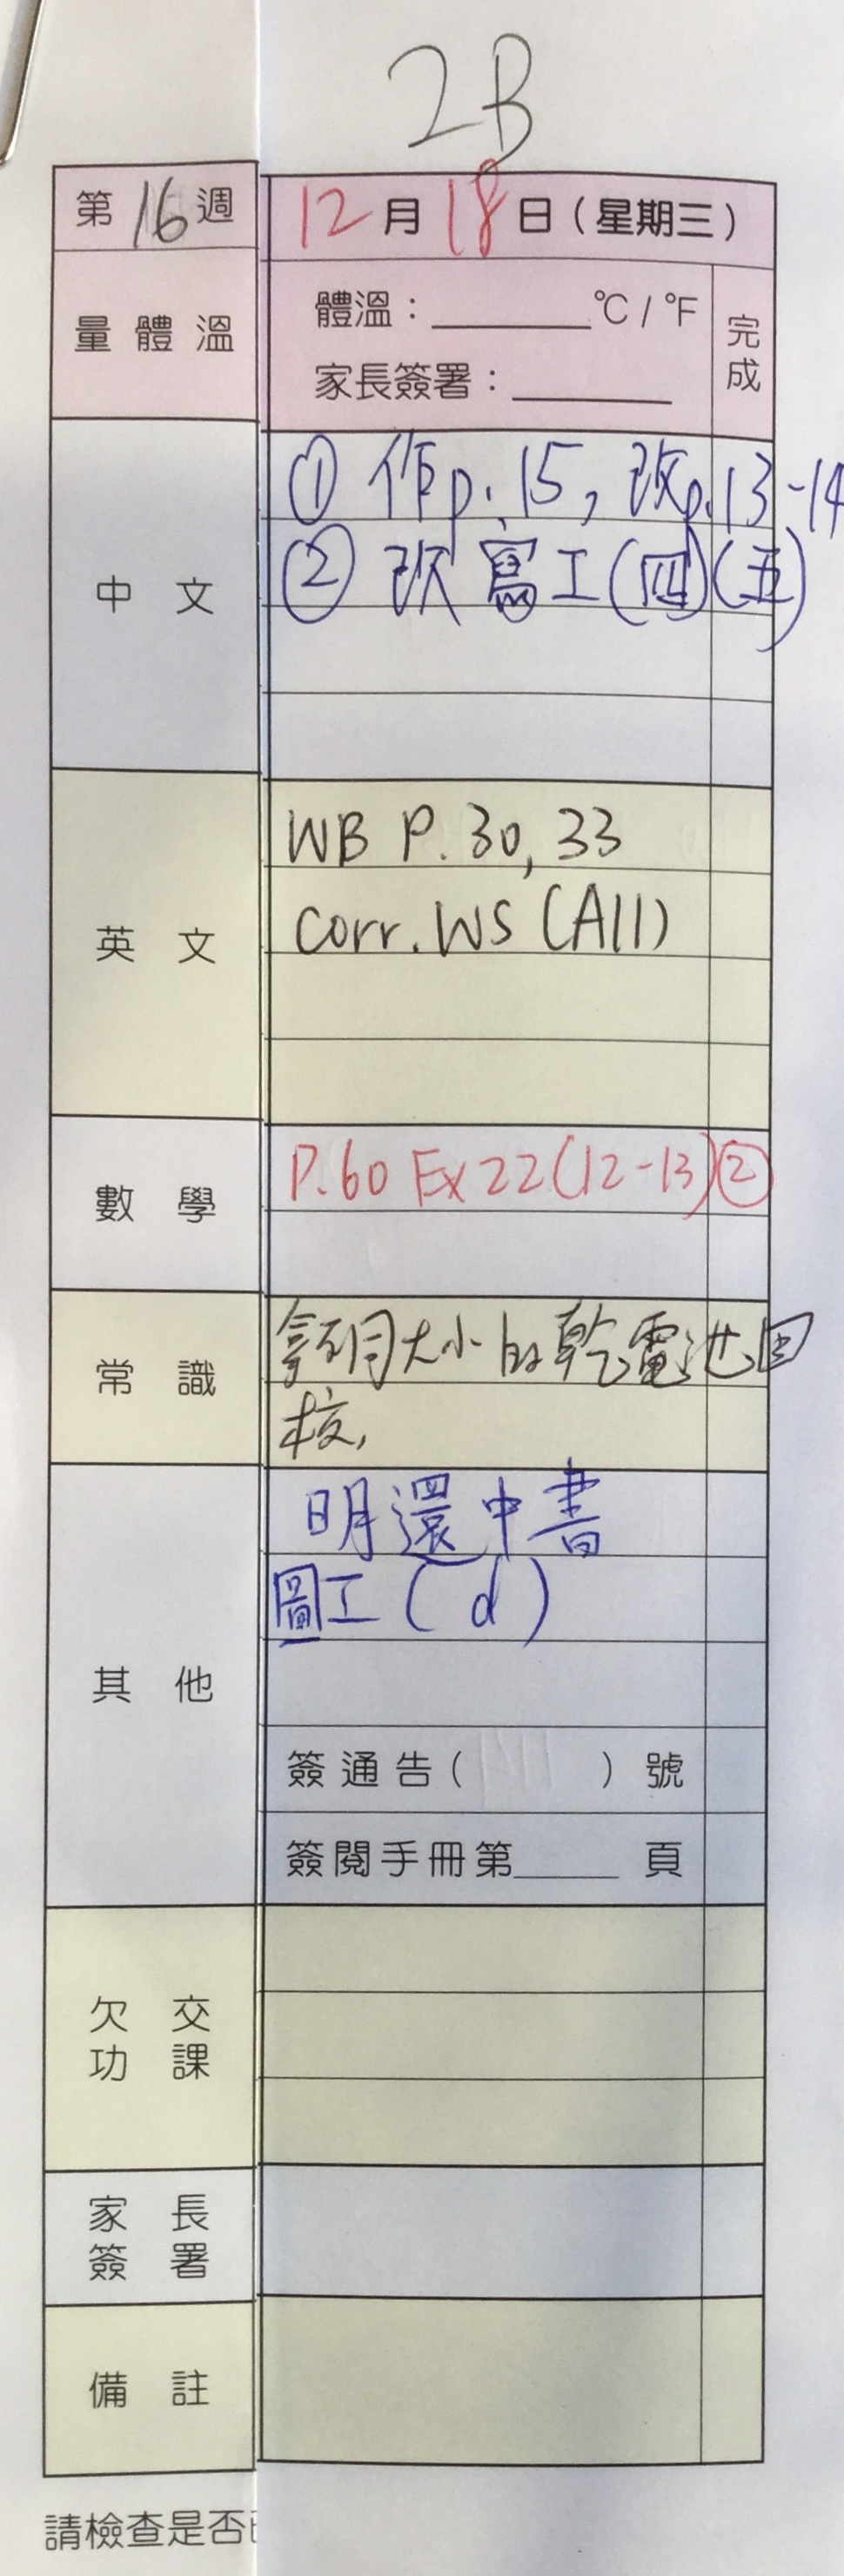 2B
第16週 12月18日(星期三)
量體溫 體溫：______°C / °F
家長簽署：______
完成
中文
① 作p.15, 改p.13-14
② 改寫工(四)(五)
英文
WB P.30, 33
Corr. WS (All)
數學
P.60 Ex 22 (12-13) ②
常識
大小的乾電池回
校,
其他
明還中書
圖工(d)
簽通告( )號
簽閱手冊第______頁
欠交
功課
家長
簽署
備註
請檢查是否